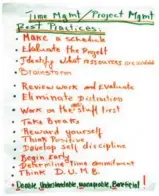 Time Mgmt/Project Mgmt
Best Practices:
• Make a schedule
• Evaluate the Project
• Identify what ressources are available
• Brainstorm
• Review work and Evaluate
• Eliminate Distraction
• Work on the staff first
• Take Breaks
• Reward yourself
• Think Positive
• Develop self discipline
• Begin early
• Determine time commitment
• Think D.U.M.B.
Doable, Understandable, Manageable, Beneficial!